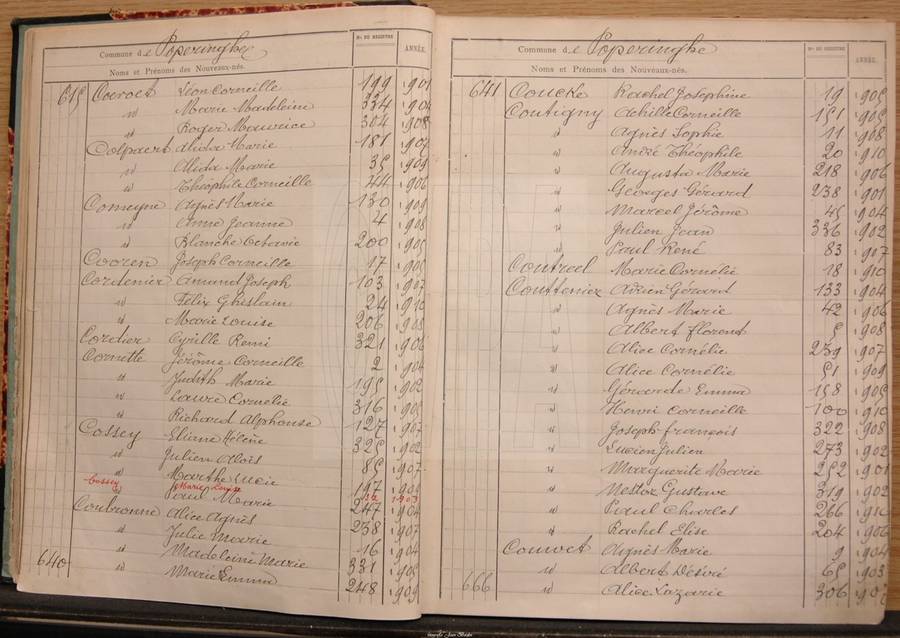 Commune de Poperinghe
Nos DU REGISTRE
ANNÉE.
Noms et Prénoms des Nouveaux-nés.
615 Léon Corneille 199 1901
id Marie Madeleine 334 1904
id Roger Maurice 304 1908
Colpaert Alida Marie 181 1907
id Alida Marie 35 1909
id Théophile Corneille 44 1906
Comeyne Agnès Marie 130 1909
id Anna Jeanne 4 1908
id Blanche Octavie 200 1905
Cooren Joseph Corneille 17 1905
Cordenier Amand Joseph 103 1907
id Félix Ghislain 24 1910
id Marie Louise 206 1908
Cordier Cyrille Remi 321 1906
Cornette Jérôme Corneille 2 1904
id Judith Marie 195 1902
id Laure Cornélie 316 1905
id Richard Alphonse 127 1907
Cossey Elianne Hélène 325 1902
id Julien Aloïs 85 1907
id Marthe Lucie 197
Cossey Marie Louise 32 1903
id Paul Marie 247 1904
Coubronne Alice Agnès 238 1907
id Julie Marie 16 1904
id Madeleine Marie 331 1905
640 id Marie Emma 248 1909
Commune de Poperinghe
Nos DU REGISTRE
ANNÉE.
Noms et Prénoms des Nouveaux-nés.
641 Couche Rachel Joséphine 19 1905
Coutigny Achille Corneille 151 1905
id Agnès Sophie 11 1908
id André Théophile 20 1910
id Augusta Marie 218 1906
id Georges Gérard 238 1901
id Marcel Jérôme 45 1904
id Julien Jean 336 1902
id Paul René 83 1907
Coutreel Marie Cornélie 18 1910
Couttenier Adrien Gérard 133 1904
id Agnès Marie 42 1906
id Albert Florent 5 1908
id Alice Cornélie 239 1907
id Alice Cornélie 51 1909
id Gérarde Emma 158 1905
id Henri Corneille 100 1910
id Joseph François 322 1908
id Lucien Julien 273 1902
id Marguerite Marie 252 1901
id Nestor Gustave 319 1902
id Paul Charles 266 1910
id Rachel Elise 204 1906
Couwet Agnès Marie 9 1904
id Albert Désiré 65 1903
666 id Alice Lazarie 306